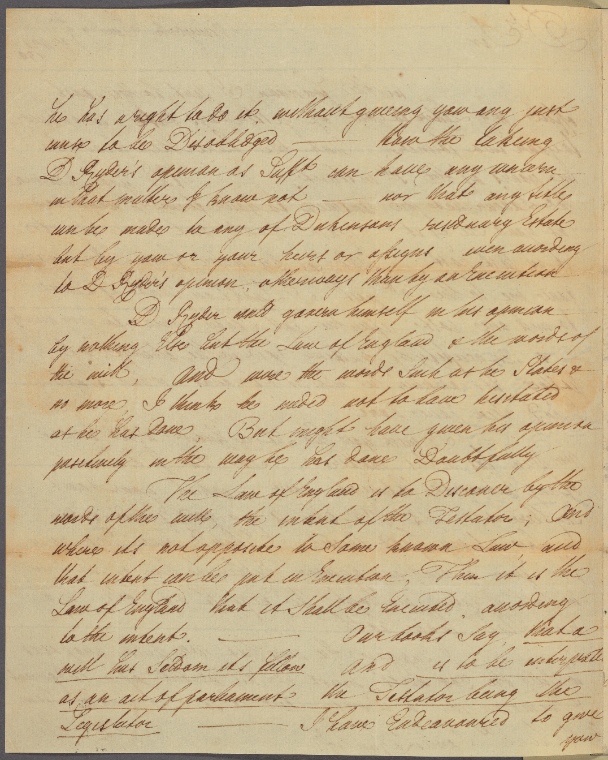 he has a right to do it without giveing you any just
cause to be Disobledged —— How the takeing
D Ryder's opinion as Supt can have any concern
in that matter I know not —— nor that any title
can be made to any of Dickensons residuary Estate
but by you or your heirs or assigns even according
to D Ryder's opinion, otherways than by an Execution
D Ryder will govern himself in his opinion
by nothing Else but the Law of England & the words of
the will, And were the words such as he States &
no more, I think he needed not to have hesitated
as he has done, But might have given his opinion
positively in the way he has done Doubtfully
The Law of England is to Discover by the
words of the will, the intent of the Testator; and
where its not opposite to Some known Law, and
that intent can be put in Execution, Then it is the
Law of England that it shall be Executed, according
to the intent. —— Our books Say, that a
will has Seldom its fellow and is to be interpreted
as an act of parliament the Testator being the
Legislator —— I have Endeavoured to give
you